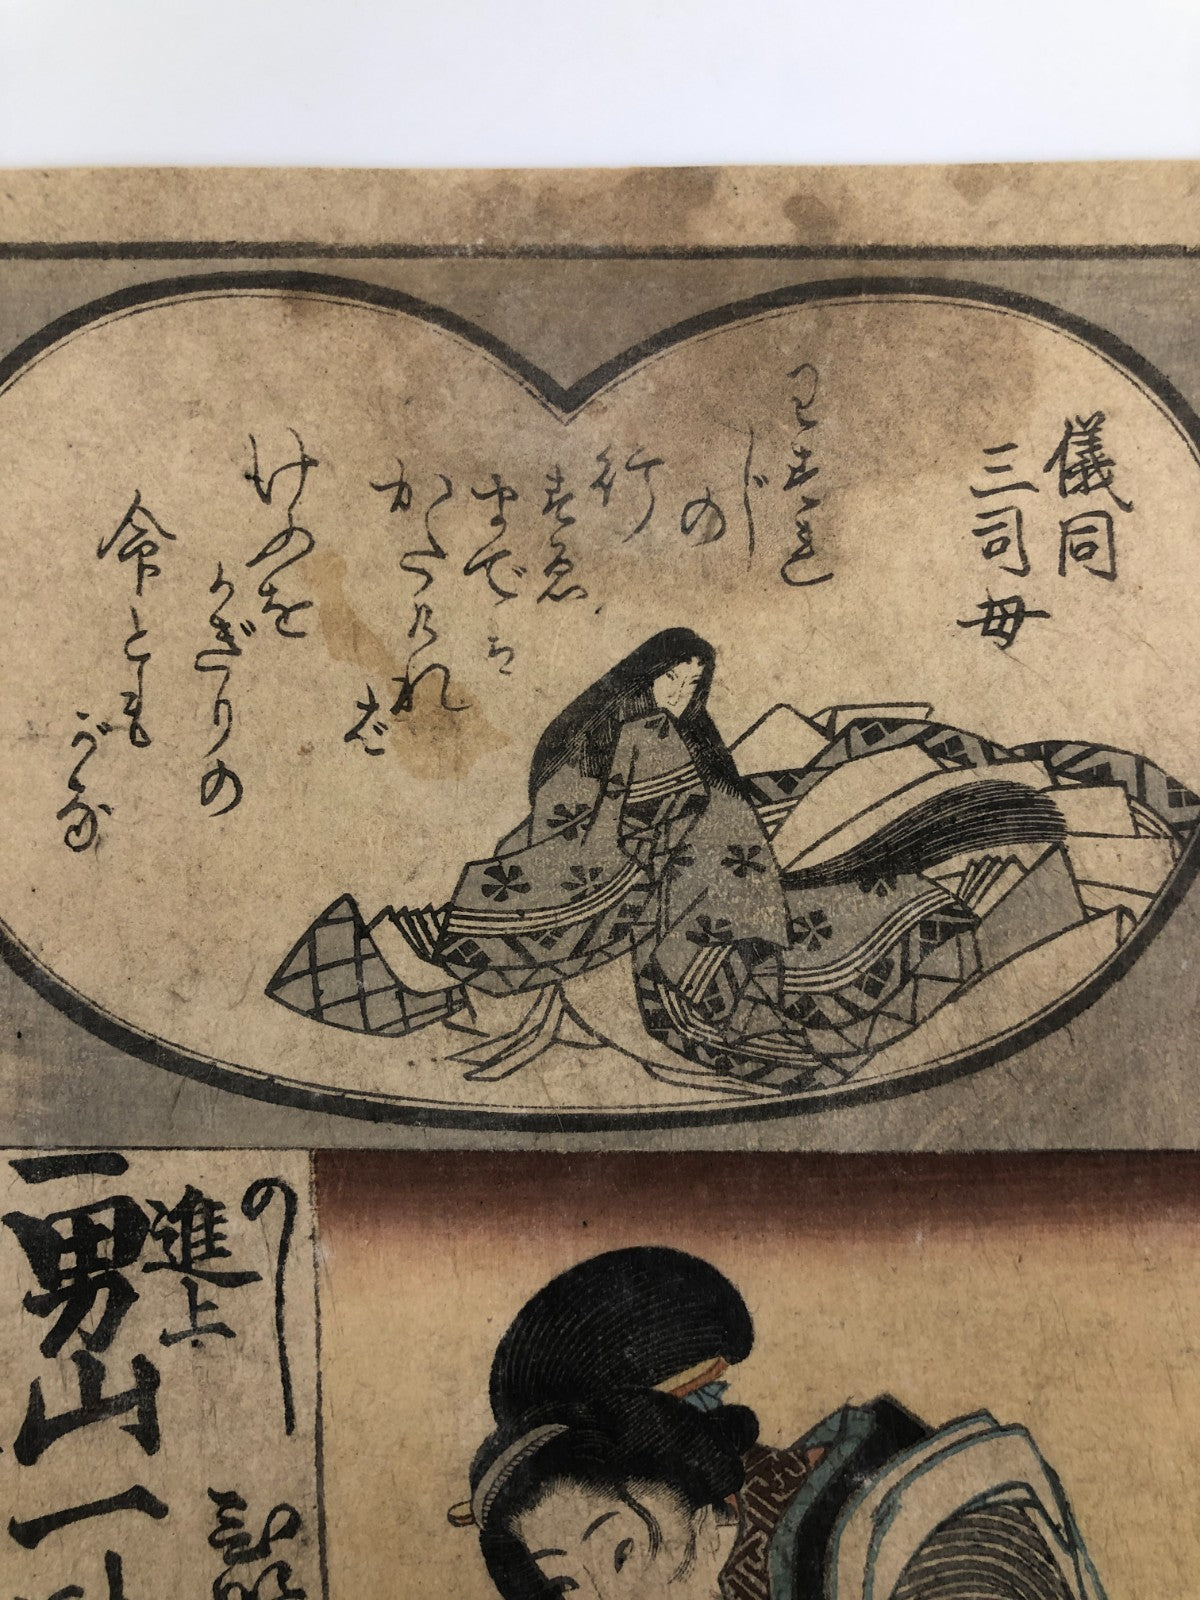 儀同
三司母
わすれ
じ
の
行
すゑ
までは
かたけれ
ば
けふを
かぎりの
命とも
がな
の
進上
男山